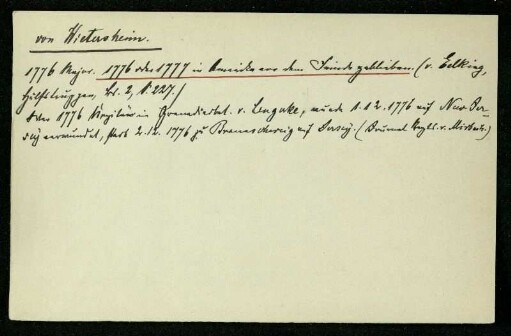 von Wietersheim.
1776 Major. 1776 oder 1777 in Amerika vor dem Feinde geblieben. (v. Eelking,
Hilfstruppen, Bd. 2, S. 227.)
Oder 1776 Kapitän in Grenadierbat. v. Lengerke, wurde 1.12.1776 auf New Jer-
sey verwundet, starb 2.12.1776 zu Brunschweig auf Jersey. (Journal Regts. v. Mirbach.)